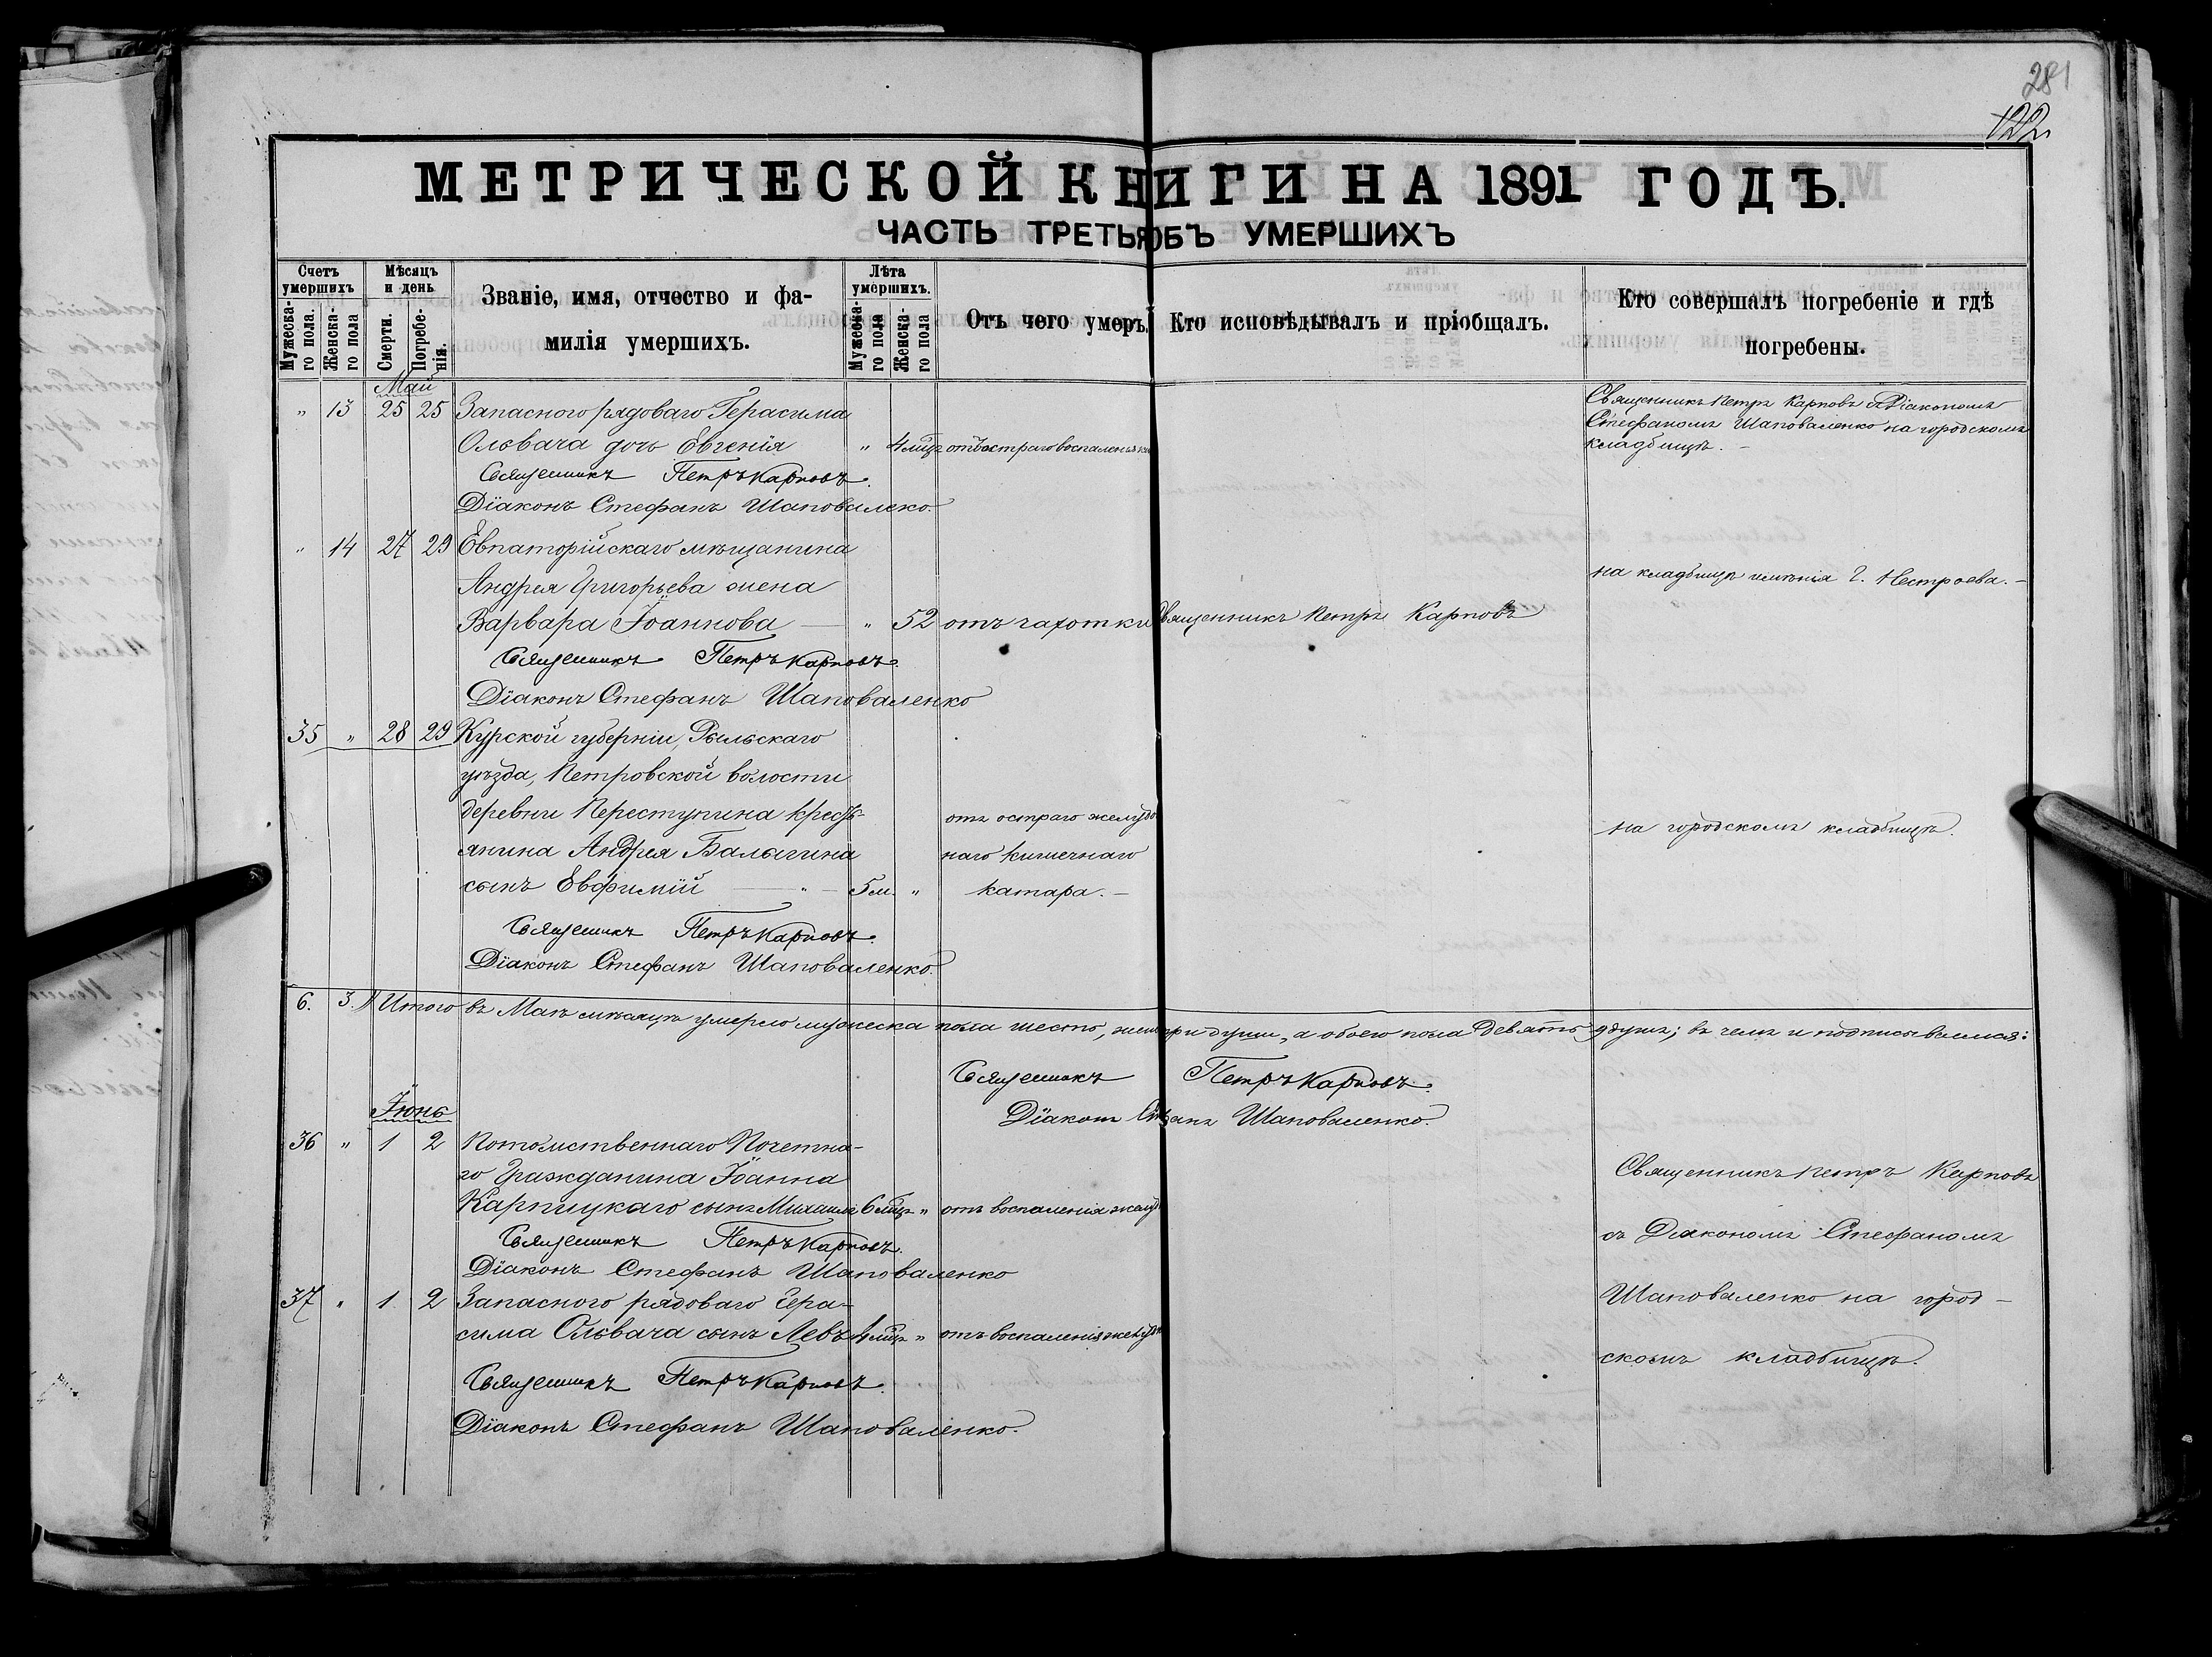 281
122
МЕТРИЧЕСКОЙ КНИГИ НА 1891 ГОДЪ.
ЧАСТЬ ТРЕТЬЯ ОБЪ УМЕРШИХЪ
Счетъ умершихъ
Мужеска-го пола.
Женска-го пола
Мѣсяцъ и день
Смерти.
Погребе-нія.
Званіе, имя, отчество и фа-
милія умершихъ.
Лѣта умершихъ.
Мужеска-го пола
Женска-го пола
Отъ чего умеръ.
Кто исповѣдывалъ и пріобщалъ.
Кто совершалъ погребеніе и гдѣ
погребены.
Май
" 13 25 25 Запаснаго рядоваго Герасима
Ольвача дочь Евгенія " 4 мѣц отъ остраго воспаленія
Священникъ Петръ Карповъ.
Діаконъ Стефанъ Шаповаленко.
Священникъ Петръ Карповъ съ Діакономъ
Стефаномъ Шаповаленко на городскомъ
кладбищѣ. –
" 14 27 29 Евпаторійскаго мѣщанина
Андрея Григорьева жена
Варвара Іоаннова — " 52 отъ чахотки Священникъ Петръ Карповъ
на кладбищѣ имѣнія Г. Нестроева. –
Священникъ Петръ Карповъ.
Діаконъ Стефанъ Шаповаленко
35 " 28 29 Курской губерніи, Рыльскаго
уѣзда, Петровской волости
деревни Переступина кресть-
янина Андрея Балыгина
сынъ Евфимій — " — 5 м. "
отъ остраго желудоч
наго кишечнаго
катара. –
на городскомъ кладбищѣ.
Священникъ Петръ Карповъ.
Діаконъ Стефанъ Шаповаленко.
6. 3. Итого въ Маѣ мѣсяцѣ умерло мужеска пола шесть, жен три души, а обоего пола девять 9 душъ; въ чемъ и подписываемся:
Священникъ Петръ Карповъ.
Діаконъ Стефанъ Шаповаленко.
Іюнь
36 " 1 2 Потомственнаго Почетна-
го Гражданина Іоанна
Карпицкаго сынъ Михаилъ 6 мѣц " отъ воспаленія желуд
Священникъ Петръ Карповъ.
Діаконъ Стефанъ Шаповаленко
37 " 1 2 Запасного рядоваго Гера-
сима Ольвача сынъ Левъ 4 мѣц " отъ воспаленія желуд
Священникъ Петръ Карповъ.
Діаконъ Стефанъ Шаповаленко.
Священникъ Петръ Карповъ
съ Діакономъ Стефаномъ
Шаповаленко на город-
скомъ кладбищѣ.